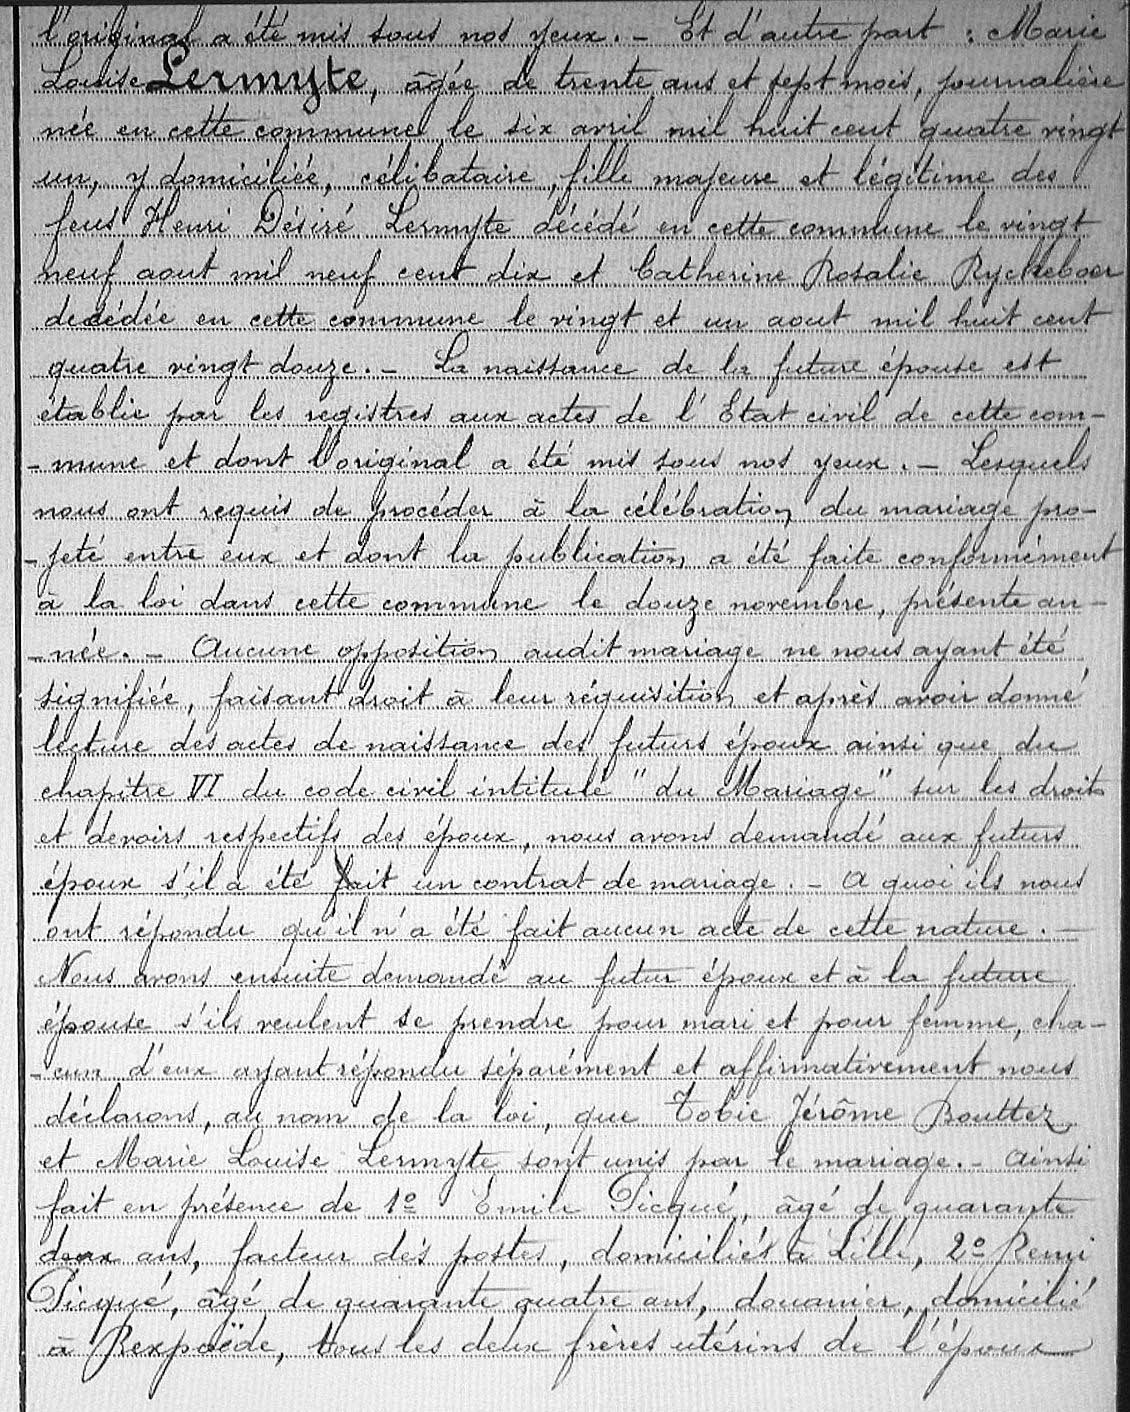 l'original a été mis sous nos yeux. _ Et d'autre part : Marie
Louise Lermyte, âgée de trente ans et sept mois, journalière
née en cette commune le six avril mil huit cent quatre vingt
un, y domiciliée, célibataire, fille majeure et légitime des
feus Henri Désiré Lermyte décédé en cette commune le vingt
neuf aout mil neuf cent dix et Catherine Rosalie Ryckeboer
decédée en cette commune le vingt et un aout mil huit cent
quatre vingt douze. _ La naissance de la future épouse est
établie par les registres aux actes de l'Etat civil de cette com-
-mune et dont l'original a été mis sous nos yeux. _ Lesquels
nous ont requis de procéder à la célébration du mariage pro-
-jeté entre eux et dont la publication a été faite conformément
à la loi dans cette commune le douze novembre, présente an-
-née. _ Aucune opposition audit mariage ne nous ayant été
signifiée, faisant droit à leur réquisition et après avoir donné
lecture des actes de naissance des futurs époux ainsi que du
chapitre VI du code civil intitulé "du Mariage" sur les droits
et devoirs respectifs des époux, nous avons demandé aux futurs
époux s'il a été fait un contrat de mariage. _ A quoi ils nous
ont répondu qu'il n'a été fait aucun acte de cette nature. _
Nous avons ensuite demandé au futur époux et à la future
épouse s'ils veulent se prendre pour mari et pour femme, cha-
-cun d'eux ayant répondu séparément et affirmativement nous
déclarons, au nom de la loi, que Tobie Jérôme Bouttez
et Marie Louise Lermyte sont unis par le mariage. _ Ainsi
fait en présence de 1º Émile Picqué, âgé de quarante
deux ans, facteur des postes, domiciliés à Lille, 2º Remi
Picqué, âgé de quarante quatre ans, douanier, domicilié
à Rexpoëde, tous les deux frères utérins de l'époux